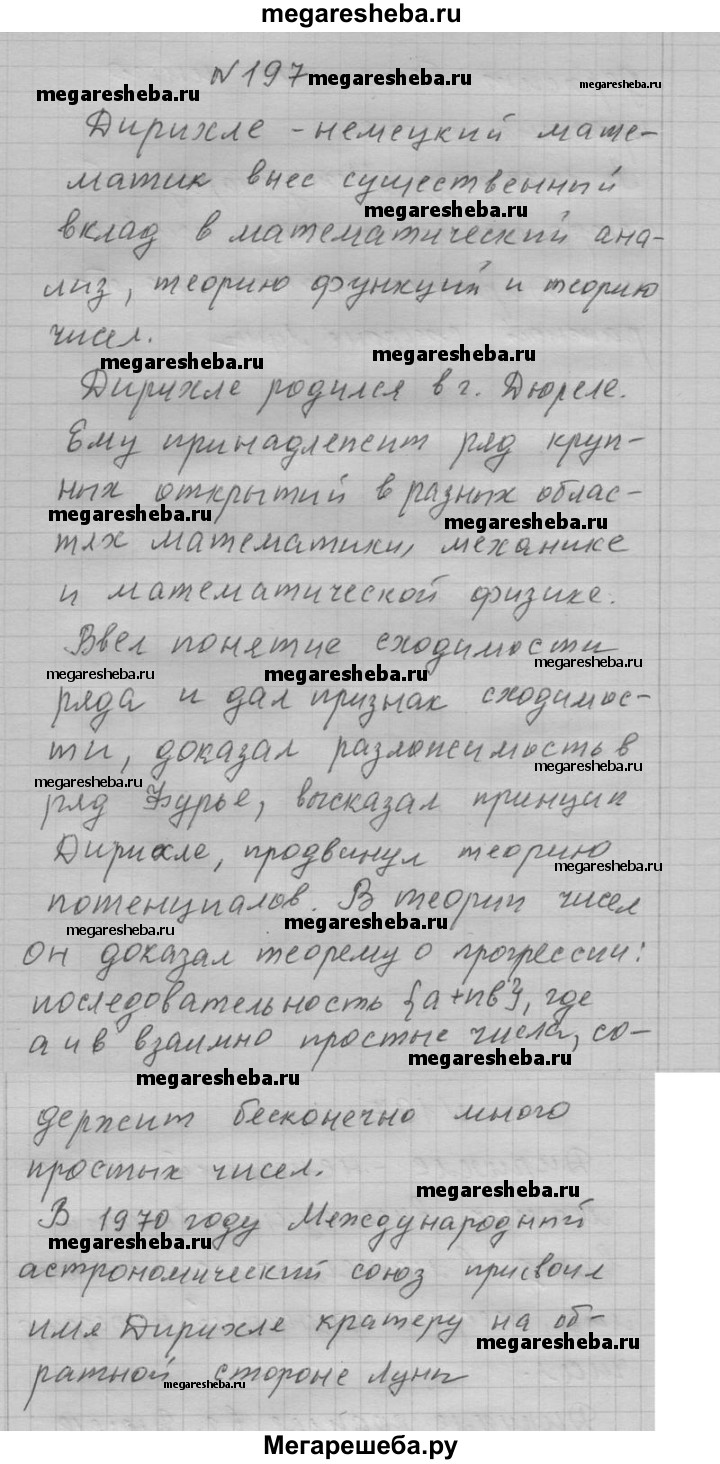 megaresheba.ru
№197
megaresheba.ru
megaresheba.ru
megaresheba.ru
Дирихле - немецкий мате-
матик внес существенный
megaresheba.ru
вклад в математический ана-
лиз, теорию функций и теорию
чисел.
megaresheba.ru
megaresheba.ru
Дирихле родился в г. Дюреле.
Ему принадлежит ряд круп-
ных открытий в разных облас-
megaresheba.ru
megaresheba.ru
тях математики, механике
и математической физике.
Ввел понятие сходимости
megaresheba.ru
megaresheba.ru
megaresheba.ru
ряда и дал признак сходимос-
ти, доказал разложимость в
megaresheba.ru
megaresheba.ru
ряд Фурье, высказал принцип
Дирихле, продвинул теорию
megaresheba.ru
потенциалов. В теории чисел
megaresheba.ru
megaresheba.ru
он доказал теорему о прогрессии:
последовательность {a+nв}, где
а и в взаимно простые числа, со-
megaresheba.ru
megaresheba.ru
держит бесконечно много
простых чисел.
megaresheba.ru
В 1970 году Международный
megaresheba.ru
астрономический союз присвоил
имя Дирихле кратеру на об-
megaresheba.ru
ратной стороне Луны
megaresheba.ru
Мегарешеба.ру